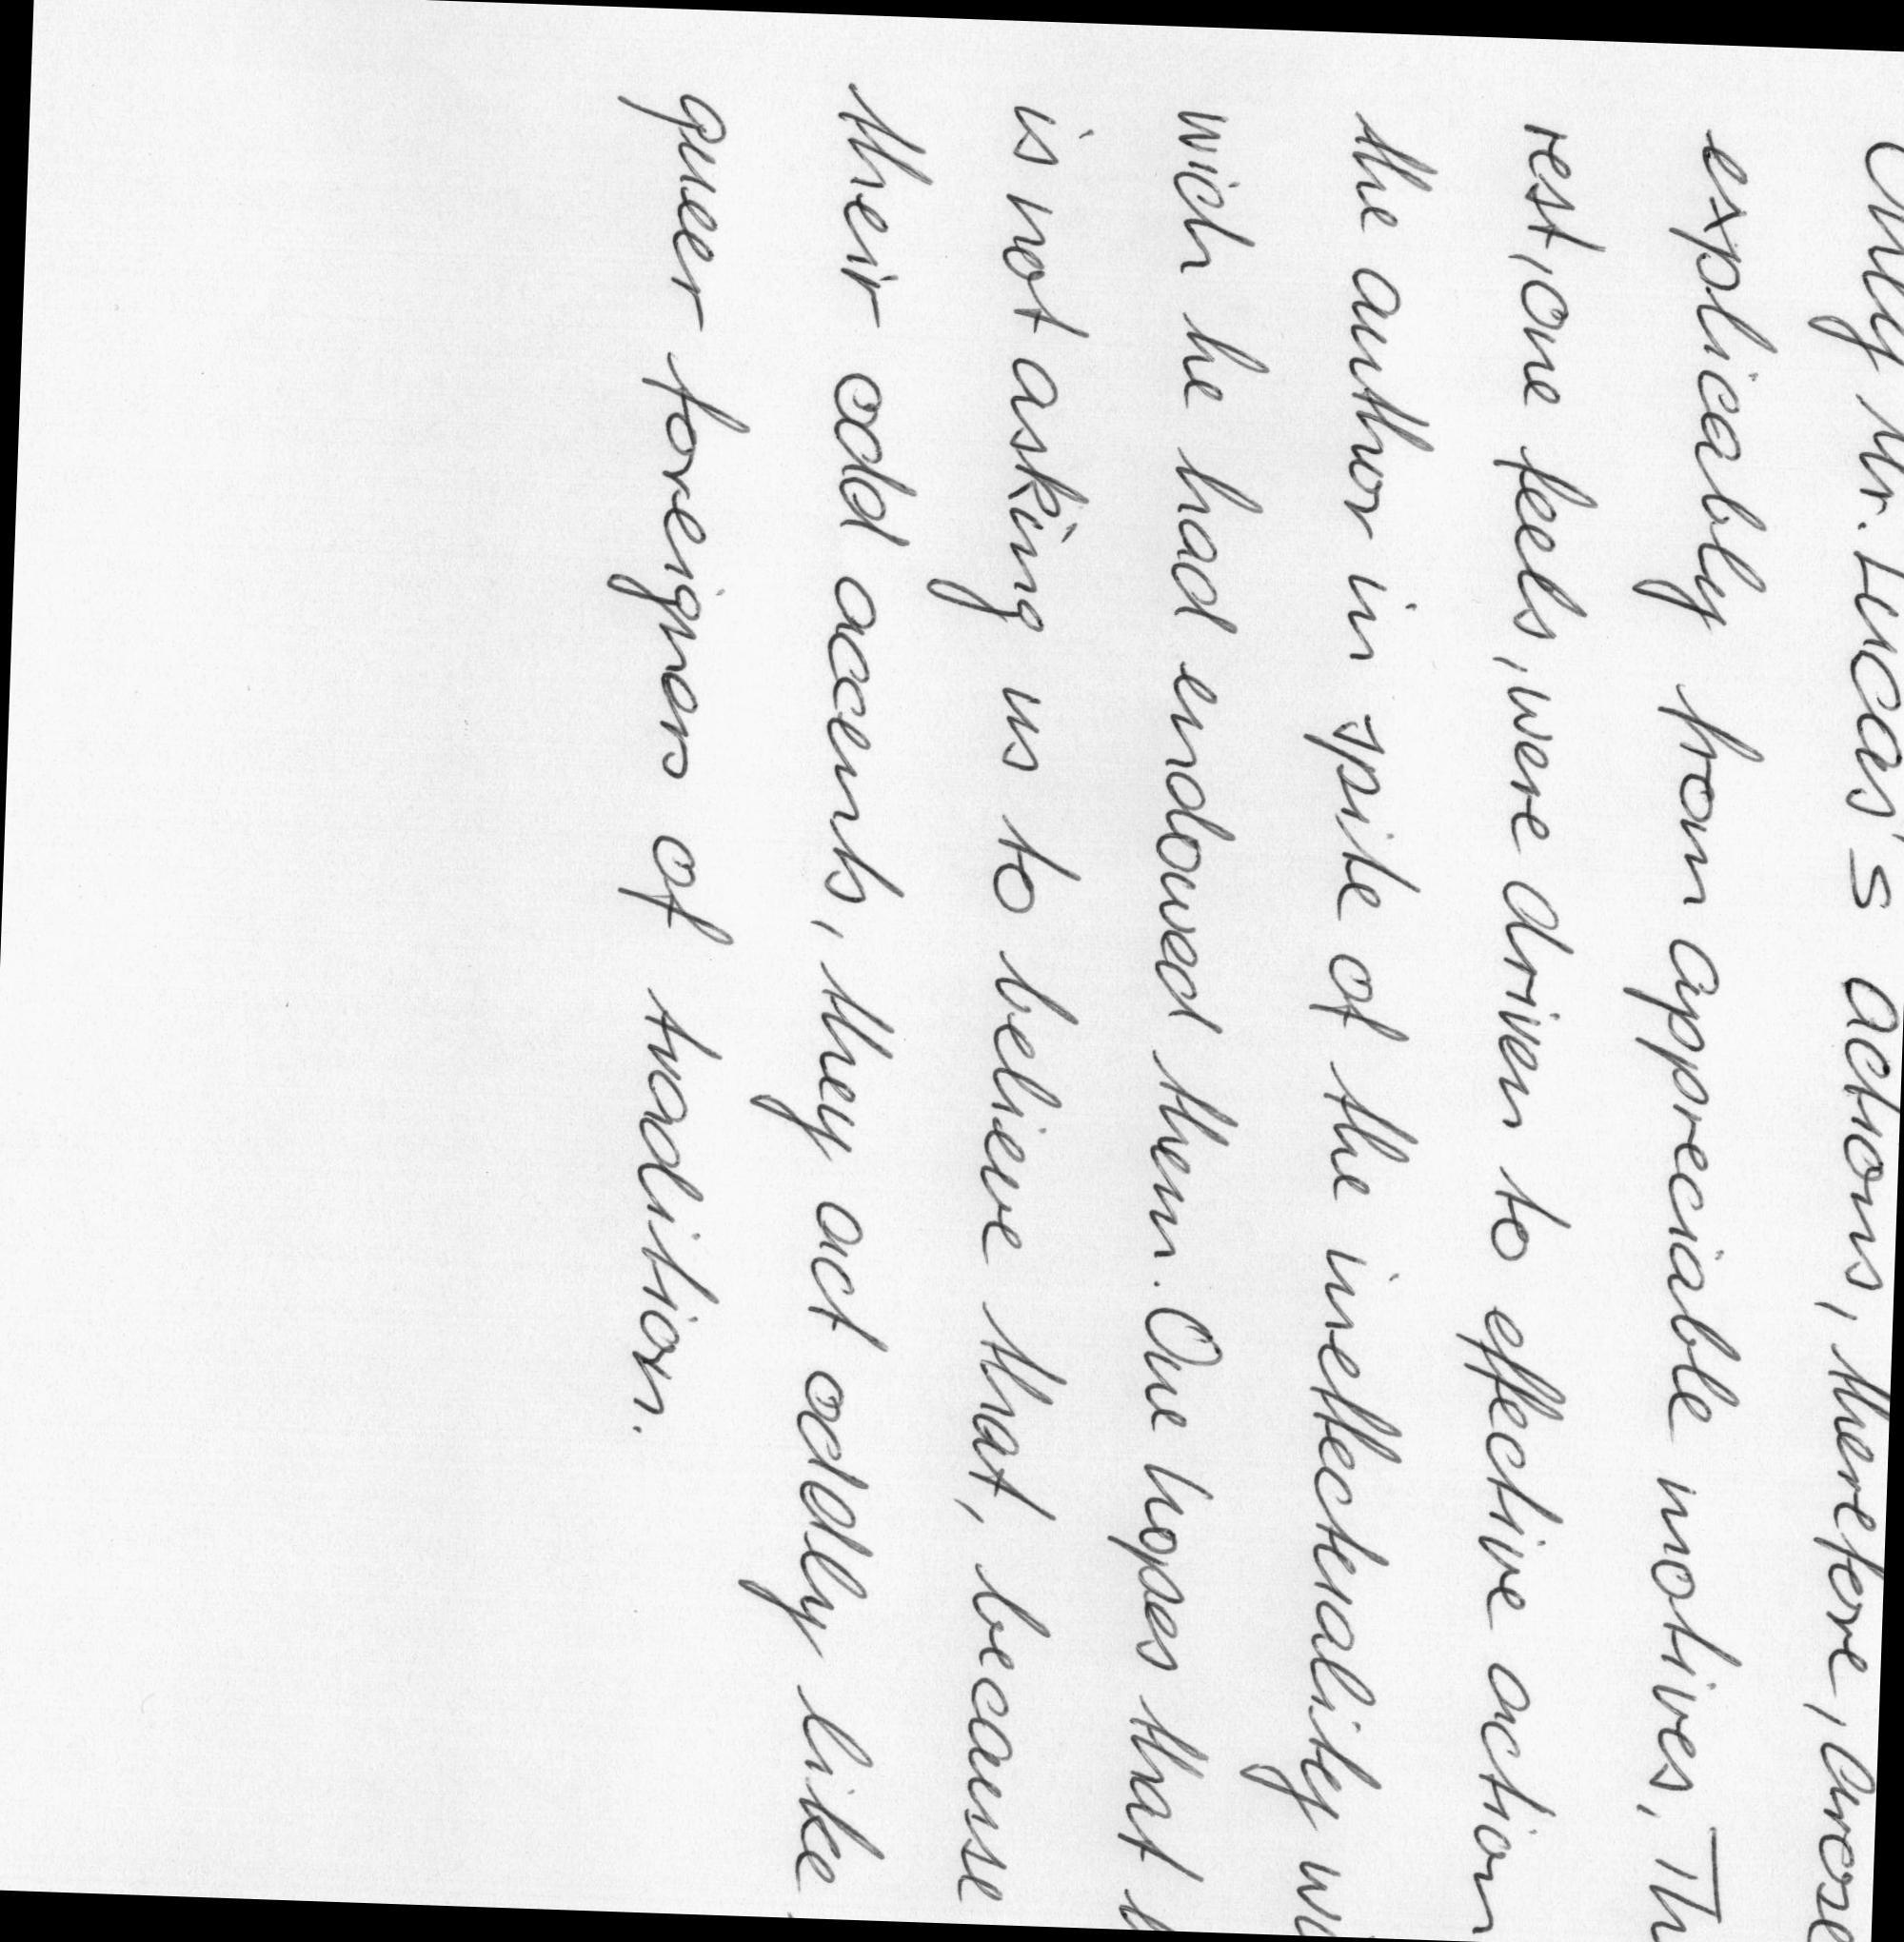 Only Mr. Lucas's actions, therefore, arose
explicably from appreciable motives. Th
rest, one feels, were driven to effective action
the author in spite of the ineffectuality wi
wich he had endowed them. One hopes that h
is not asking us to believe that, because
their odd accents, they act oddly like
queer foreigners of tradition.